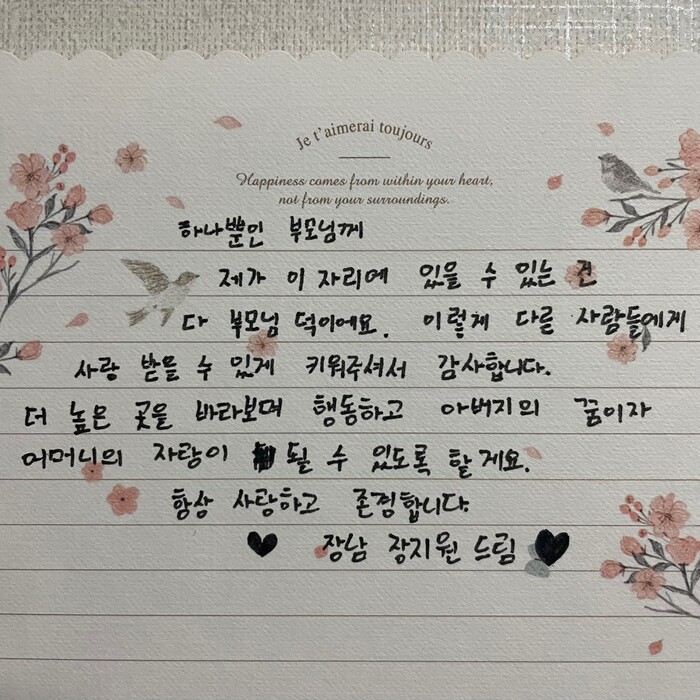 Je t'aimerai toujours
Happiness comes from within your heart,
not from your surroundings.
하나뿐인 부모님께
제가 이 자리에 있을 수 있는 건
다 부모님 덕이에요. 이렇게 다른 사람들에게
사랑 받을 수 있게 키워주셔서 감사합니다.
더 높은 곳을 바라보며 행동하고 아버지의 꿈이자
어머니의 자랑이 될 수 있도록 할게요.
항상 사랑하고 존경합니다.
장남 장지원 드림